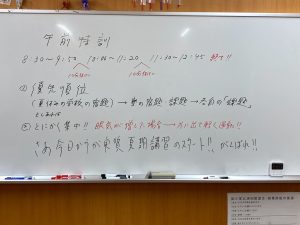 午前特訓
8:30~9:50 10:00~11:20 11:30~12:45 終了!!
10分休み 10分休み
① 優先順位
(夏休みの学校の宿題) → 塾の宿題 課題 → 各自の「課題」
② とにかく集中!! 眠気が増した場合 → 外に出て軽く運動!!
さあ 今日からが本質 夏期講習のスタート!! がんばれ!!